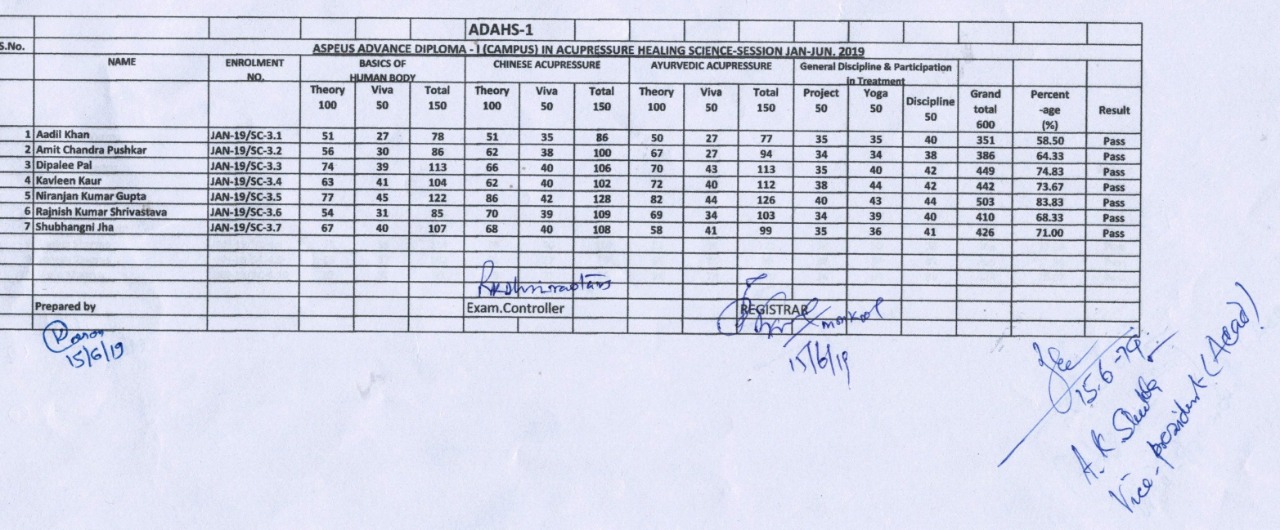 ADAHS-1
S.No. ASPEUS ADVANCE DIPLOMA - I (CAMPUS) IN ACUPRESSURE HEALING SCIENCE-SESSION JAN-JUN. 2019
NAME ENROLMENT NO. BASICS OF HUMAN BODY CHINESE ACUPRESSURE AYURVEDIC ACUPRESSURE General Discipline & Participation in Treatment
Theory 100 Viva 50 Total 150 Theory 100 Viva 50 Total 150 Theory 100 Viva 50 Total 150 Project 50 Yoga 50 Discipline 50 Grand total 600 Percent -age (%) Result
1 Aadil Khan JAN-19/SC-3.1 51 27 78 51 35 86 50 27 77 35 35 40 351 58.50 Pass
2 Amit Chandra Pushkar JAN-19/SC-3.2 56 30 86 62 38 100 67 27 94 34 34 38 386 64.33 Pass
3 Dipalee Pal JAN-19/SC-3.3 74 39 113 66 40 106 70 43 113 35 40 42 449 74.83 Pass
4 Kavleen Kaur JAN-19/SC-3.4 63 41 104 62 40 102 72 40 112 38 44 42 442 73.67 Pass
5 Niranjan Kumar Gupta JAN-19/SC-3.5 77 45 122 86 42 128 82 44 126 40 43 44 503 83.83 Pass
6 Rajnish Kumar Shrivastava JAN-19/SC-3.6 54 31 85 70 39 109 69 34 103 34 39 40 410 68.33 Pass
7 Shubhangni Jha JAN-19/SC-3.7 67 40 107 68 40 108 58 41 99 35 36 41 426 71.00 Pass
Prepared by Exam.Controller REGISTRAR
15/6/19 15/6/19
A.K. Shukla
Vice-president (Acad)